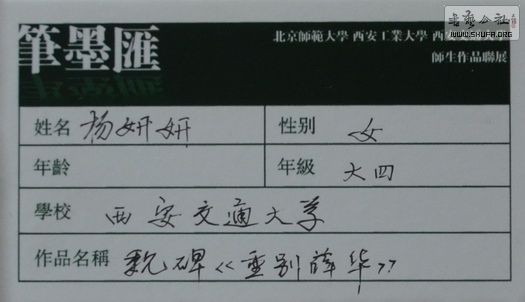 书艺公社
WWW.SHUFA.ORG
筆墨匯
北京師範大學 西安工業大學 西安
師生作品聯展
姓名 杨妍妍 性别 女
年齡 年級 大四
學校 西安交通大学
作品名稱 魏碑《重别薛华》